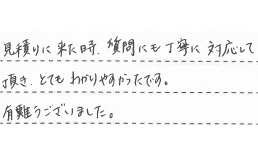 見積りに来た時、質問にも丁寧に対応して
頂き、とてもわかりやすかったです。
有難うございました。